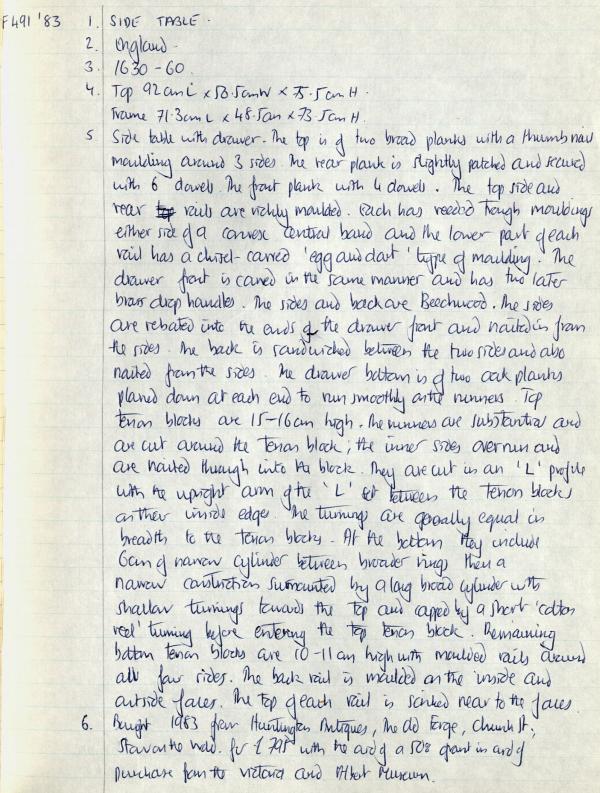 F491 '83 1. SIDE TABLE.
2. England.
3. 1630-60.
4. Top 92cm L x 50.5cm W x 75.5cm H.
Frame 71.3cm L x 48.5cm x 73.5cm H.
5 Side table with drawer. The top is of two broad planks with a thumb nail
moulding around 3 sides. The rear plank is slightly patched and secured
with 6 dowels. The front plank with 4 dowels. The top side and
rear rails are richly moulded. Each has reeded trough mouldings
either side of a convex central band and the lower part of each
rail has a chisel-carved 'egg and dart' type of moulding. The
drawer front is carved in the same manner and has two later
brass drop handles. The sides and back are Beechwood. The sides
are rebated into the ends of the drawer front and nailed in from
the sides. The back is sandwiched between the two sides and also
nailed from the sides. The drawer bottom is of two oak planks
planed down at each end to run smoothly on the runners. Top
tenon blocks are 15-16cm high. The runners are substantial and
are cut around the tenon block; the inner sides overrun and
are nailed through into the block. They are cut in an 'L' profile
with the upright arm of the 'L' set between the tenon blocks
on their inside edges. The turnings are generally equal in
breadth to the tenon blocks. At the bottom they include
6cm of narrow cylinder between broader rings then a
narrow contriction surmounted by a long broad cylinder with
shallow turnings towards the top and capped by a short 'cotton
reel' turning before entering the top tenon block. Remaining
bottom tenon blocks are 10-11cm high with moulded rails around
all four sides. The back rail is moulded on the inside and
outside faces. The top of each rail is near to the faces.
6. Bought 1983 from Huntington Antiques, The Old Forge, Church St,
Stow on the Wold. for £795 with the aid of a 50% grant in aid of
purchase from the Victoria and Albert Museum.